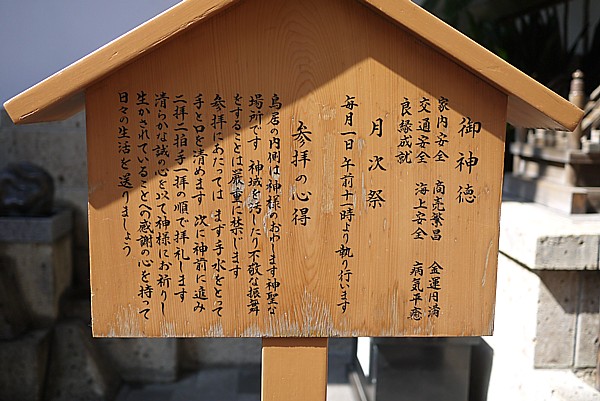 御神徳
家内安全 商売繁昌 金運円満
交通安全 海上安全 病気平癒
良縁成就
月次祭
毎月一日午前十一時より執り行います
参拝の心得
鳥居の内側は神様のおわします神聖な
場所です 神域を汚したり不敬な振舞
をすることは厳重に禁じます
参拝にあたっては まず手水をとって
手と口を清めます 次に神前に進み
二拝二拍手一拝の順で拝礼します
清らかな誠の心を以て神様にお祈りし
生かされていることへ感謝の心を持って
日々の生活を送りましょう